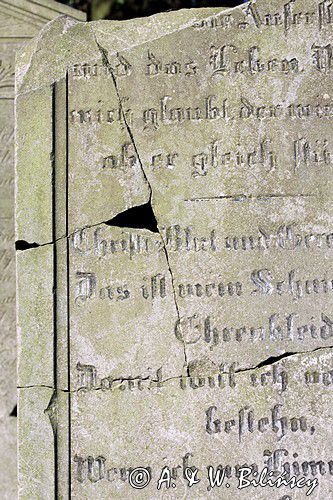 Auferst
und das Leben
mich glaubt, der wi
ob er gleich stü
Christi Blut und Gere
Das ist mein Schmu
Ehrenkleid
Damit will ich vo
bestehn,
Wenn ich zum Him
© A. & M. Bilinsky